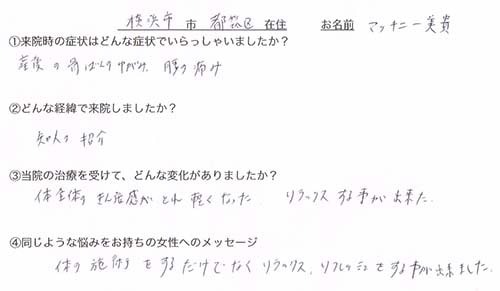 横浜市 市 都筑区 在住 お名前 マッキニー美貴
①来院時の症状はどんな症状でいらっしゃいましたか？
産後の骨ばんのゆがみ、腰の痛み
②どんな経緯で来院しましたか？
知人の紹介
③当院の治療を受けて、どんな変化がありましたか？
体全体のけん怠感がとれ軽くなった リラックスする事が出来た.
④同じような悩みをお持ちの女性へのメッセージ
体の施術をするだけでなくリラックス、リフレッシュをする事が出来ました.